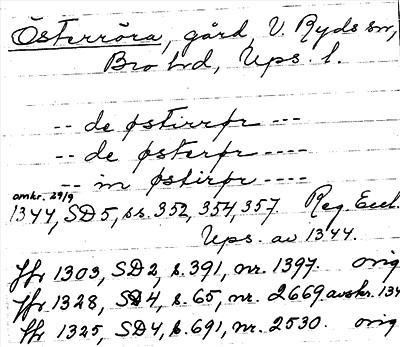 Österröra, gård, V. Ryds sn,
Bro hd, Ups. l.
-- de østirrør ----
-- de østerør ----
-- in østirør ----
omkr. 29/9
1344, SD5, ss. 352, 354, 357. Reg. Eccl.
Ups. av 1344.
ffr 1303, SD2, s. 391, nr. 1397. orig
ffr 1328, SD4, s. 65, nr. 2669 avskr. 134
ffr 1325, SD4, s. 691, nr. 2530. orig